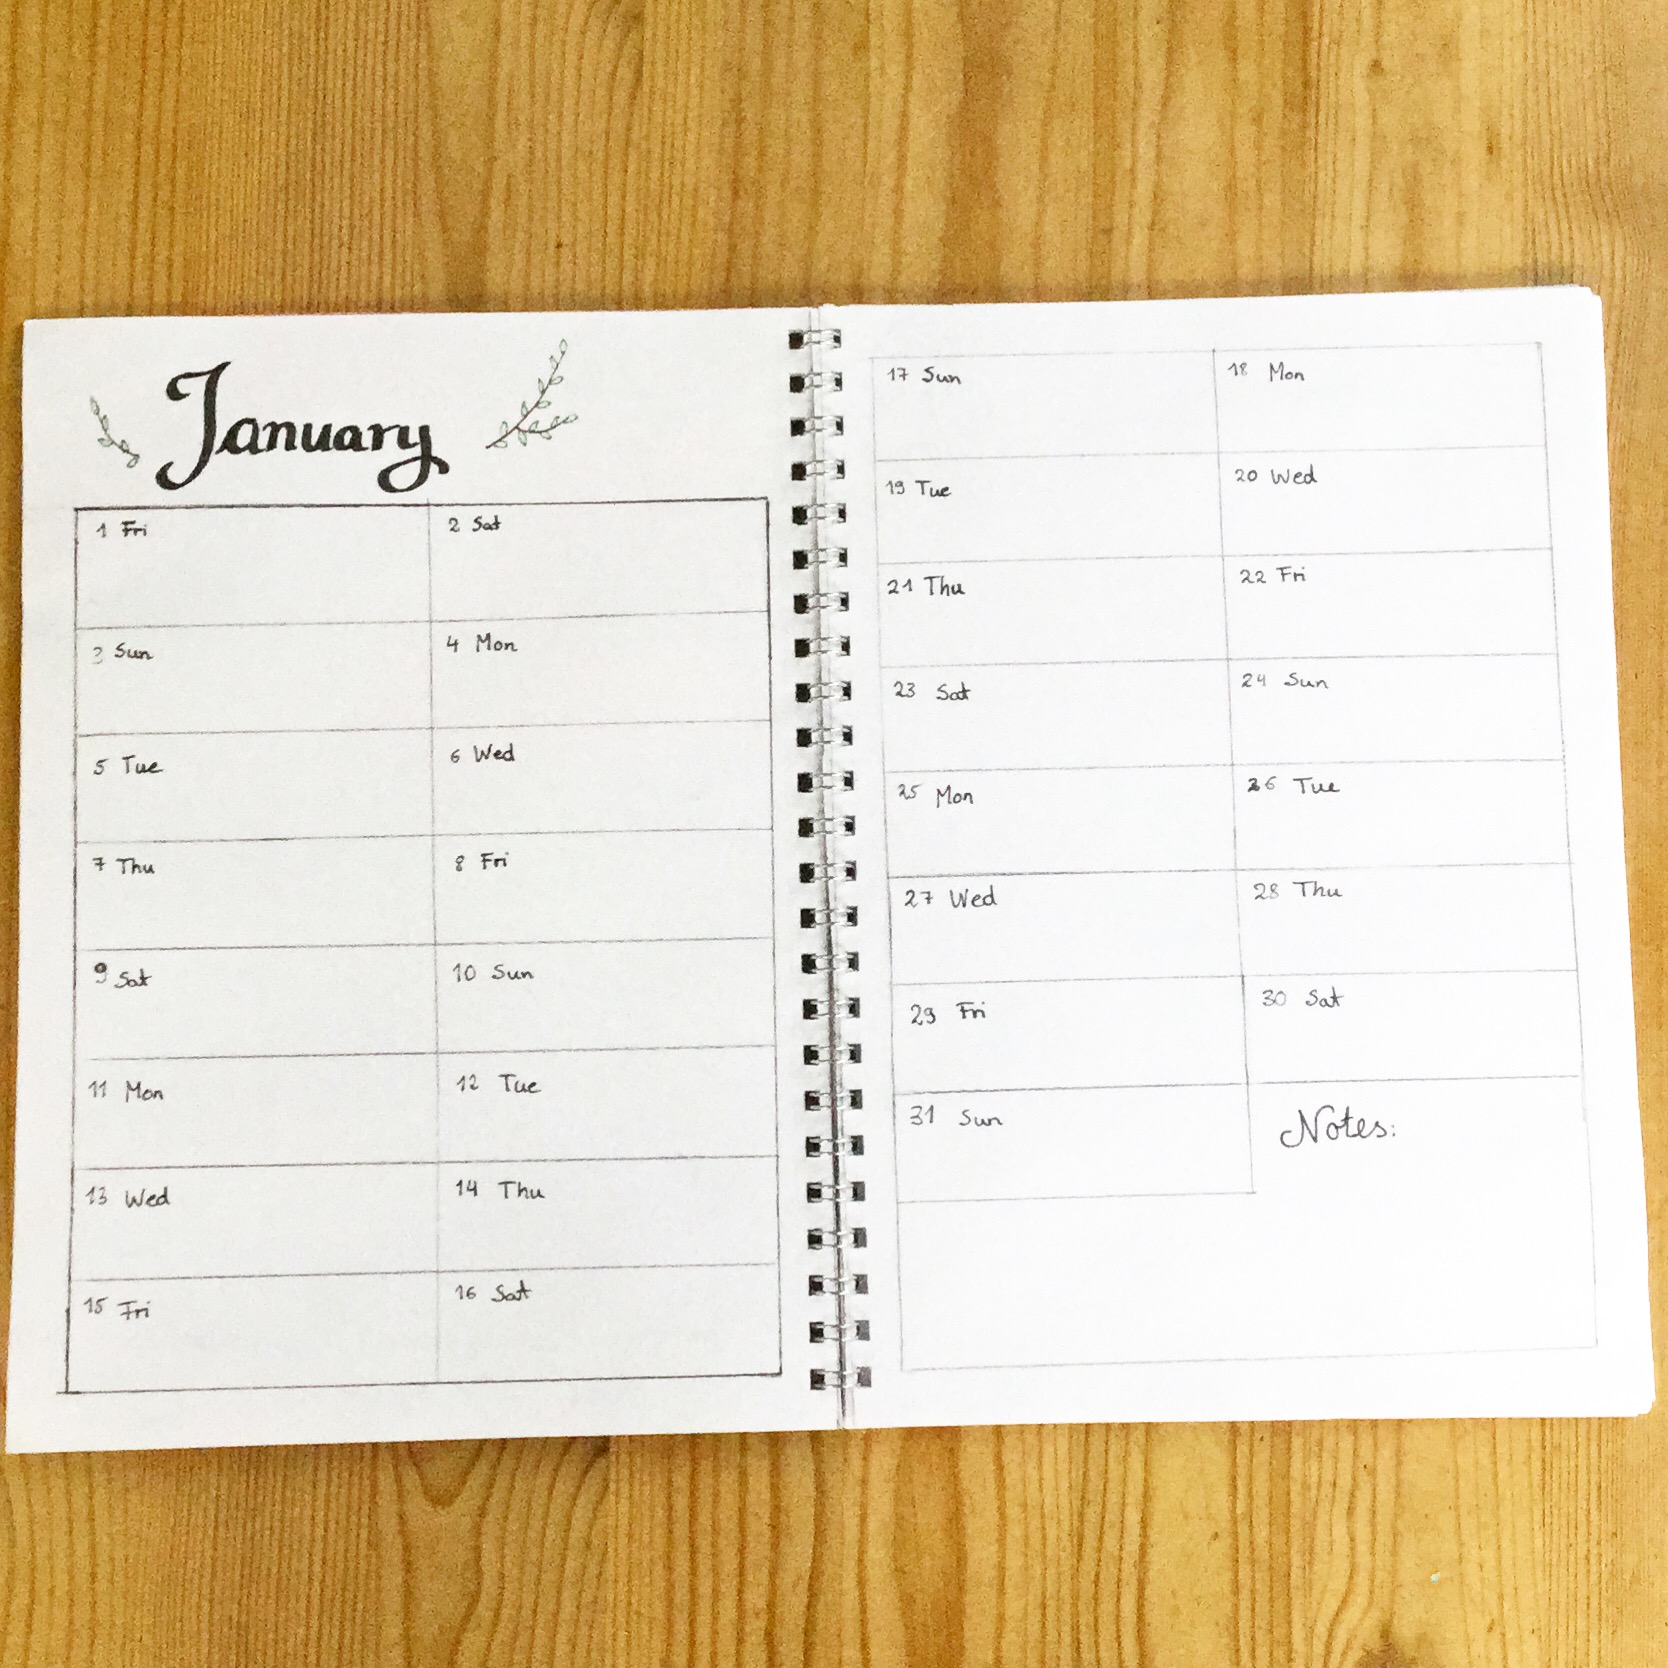 January
1 Fri
2 Sat
3 Sun
4 Mon
5 Tue
6 Wed
7 Thu
8 Fri
9 Sat
10 Sun
11 Mon
12 Tue
13 Wed
14 Thu
15 Fri
16 Sat
17 Sun
18 Mon
19 Tue
20 Wed
21 Thu
22 Fri
23 Sat
24 Sun
25 Mon
26 Tue
27 Wed
28 Thu
29 Fri
30 Sat
31 Sun
Notes: